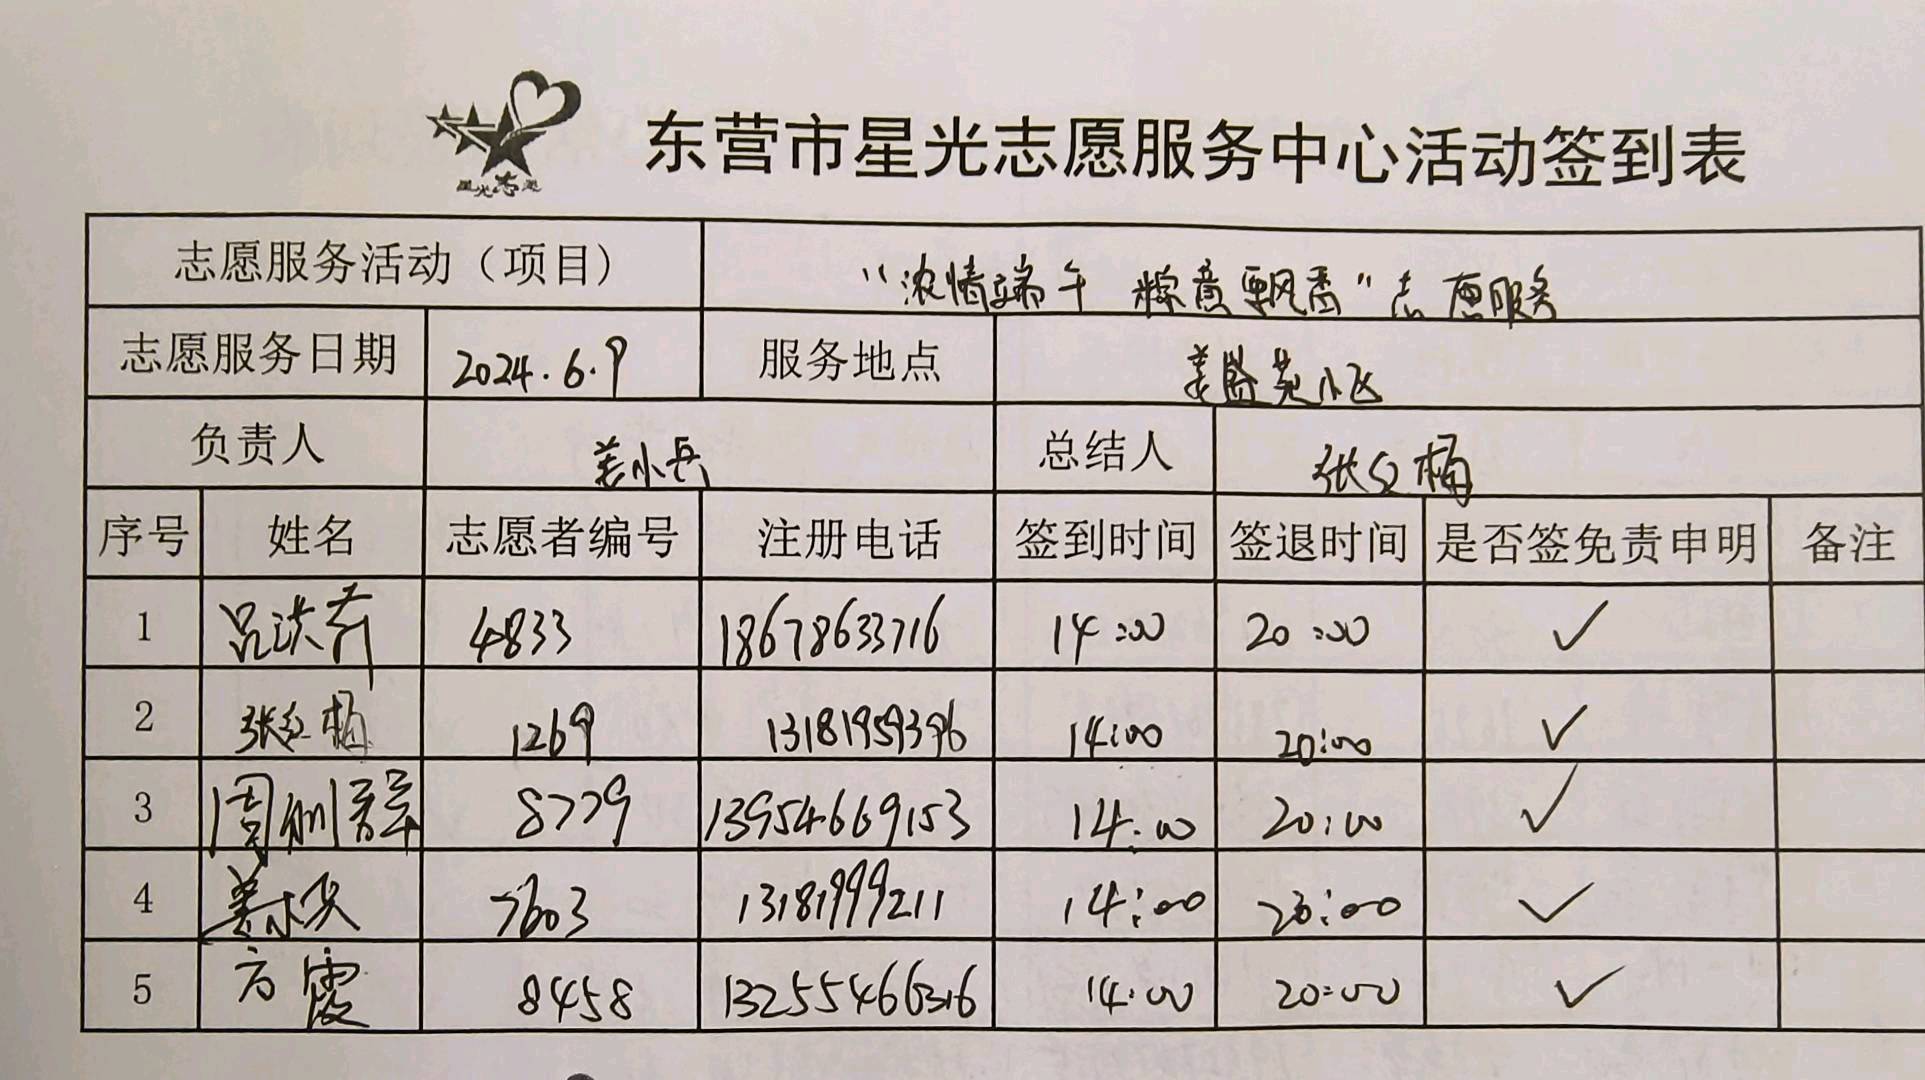 星光志愿
东营市星光志愿服务中心活动签到表
志愿服务活动（项目） “浓情端午 粽意飘香”志愿服务
志愿服务日期 2024.6.9 服务地点 美盛苑小区
负责人 姜小兵 总结人 张红梅
序号 姓名 志愿者编号 注册电话 签到时间 签退时间 是否签免责申明 备注
1 吕洪乔 4833 18678633716 14:00 20:00 ✓
2 张红梅 1269 13181959396 14:00 20:00 ✓
3 周 8779 13954669153 14:00 20:00 ✓
4 姜小兵 7603 13181999211 14:00 20:00 ✓
5 方霞 8458 13255466316 14:00 20:00 ✓